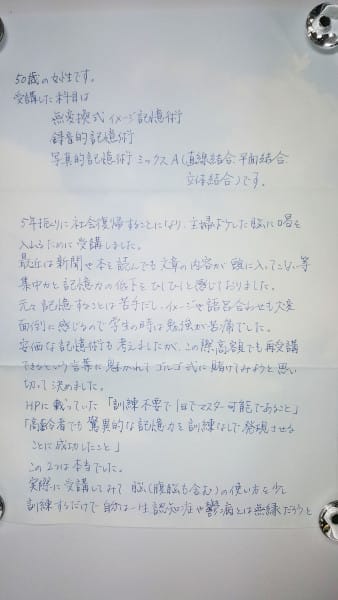 50歳の女性です。
受講した科目は
無変換式イメージ記憶術
録音的記憶術
写真的記憶術ミックスA(直線結合 平面結合
立体結合)です。
5年振りに社会復帰することになり、主婦ボケした脳に喝を
入れるために受講しました。
最近は新聞や本を読んでも文章の内容が頭に入ってこない等
集中力と記憶力の低下をひしひしと感じておりました。
元々記憶することは苦手だし、イメージや語呂合わせも大変
面倒に感じるので学生の時は勉強が苦痛でした。
安価な記憶術も考えましたが、この際高額でも再受講
できるという言葉に魅かれてゴルゴ式に賭けてみようと思い
切って決めました。
HPに載っていた「訓練不要で1日でマスター可能であること」
「高齢者でも驚異的な記憶力を訓練なしで発現させる
ことに成功したこと」
この2つは本当でした。
実際に受講してみて 脳(腹脳も含む)の使い方を少し
訓練するだけで自分は一生認知症や鬱病とは無縁だろうと